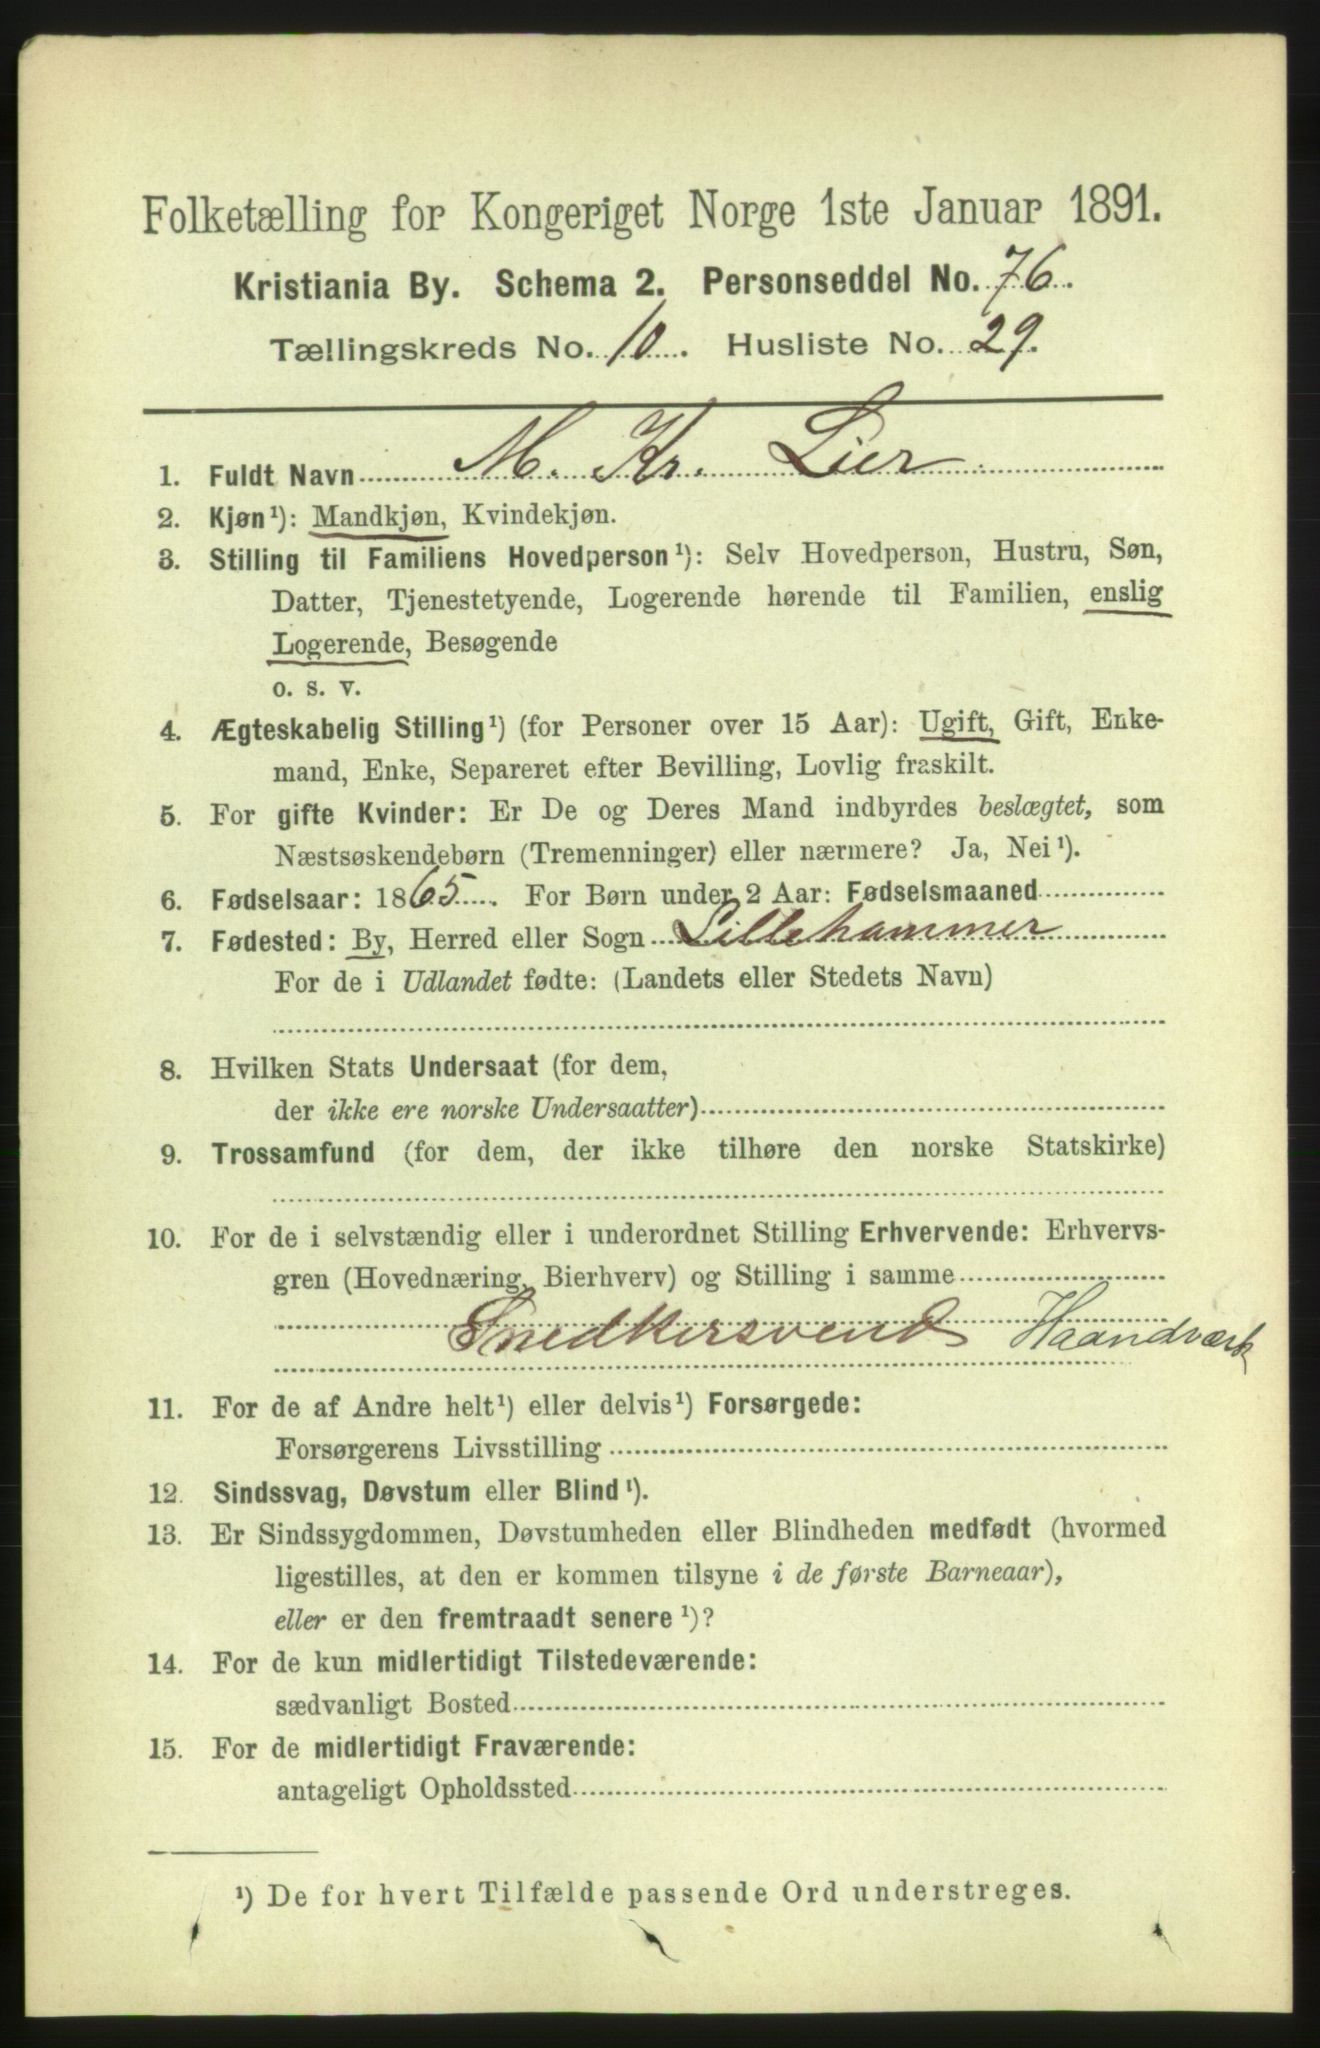 Folketælling for Kongeriget Norge 1ste Januar 1891.
Kristiania By. Schema 2. Personseddel No. 76.
Tællingskreds No. 10. Husliste No. 29.
1. Fuldt Navn M. Kr. Lier
2. Kjøn¹): Mandkjøn, Kvindekjøn.
3. Stilling til Familiens Hovedperson¹): Selv Hovedperson, Hustru, Søn,
Datter, Tjenestetyende, Logerende hørende til Familien, enslig
Logerende, Besøgende
o. s. v.
4. Ægteskabelig Stilling¹) (for Personer over 15 Aar): Ugift, Gift, Enke-
mand, Enke, Separeret efter Bevilling, Lovlig fraskilt.
5. For gifte Kvinder: Er De og Deres Mand indbyrdes beslægtet, som
Næstsøskendebørn (Tremenninger) eller nærmere? Ja, Nei¹).
6. Fødselsaar: 1865. For Børn under 2 Aar: Fødselsmaaned
7. Fødested: By, Herred eller Sogn Lillehammer
For de i Udlandet fødte: (Landets eller Stedets Navn)
8. Hvilken Stats Undersaat (for dem,
der ikke ere norske Undersaatter)
9. Trossamfund (for dem, der ikke tilhøre den norske Statskirke)
10. For de i selvstændig eller i underordnet Stilling Erhvervende: Erhvervs-
gren (Hovednæring, Bierhverv) og Stilling i samme
Snedkersvend Haandværk
11. For de af Andre helt¹) eller delvis¹) Forsørgede:
Forsørgerens Livsstilling
12. Sindssvag, Døvstum eller Blind¹).
13. Er Sindssygdommen, Døvstumheden eller Blindheden medfødt (hvormed
ligestilles, at den er kommen tilsyne i de første Barneaar),
eller er den fremtraadt senere¹)?
14. For de kun midlertidigt Tilstedeværende:
sædvanligt Bosted
15. For de midlertidigt Fraværende:
antageligt Opholdssted
¹) De for hvert Tilfælde passende Ord understreges.